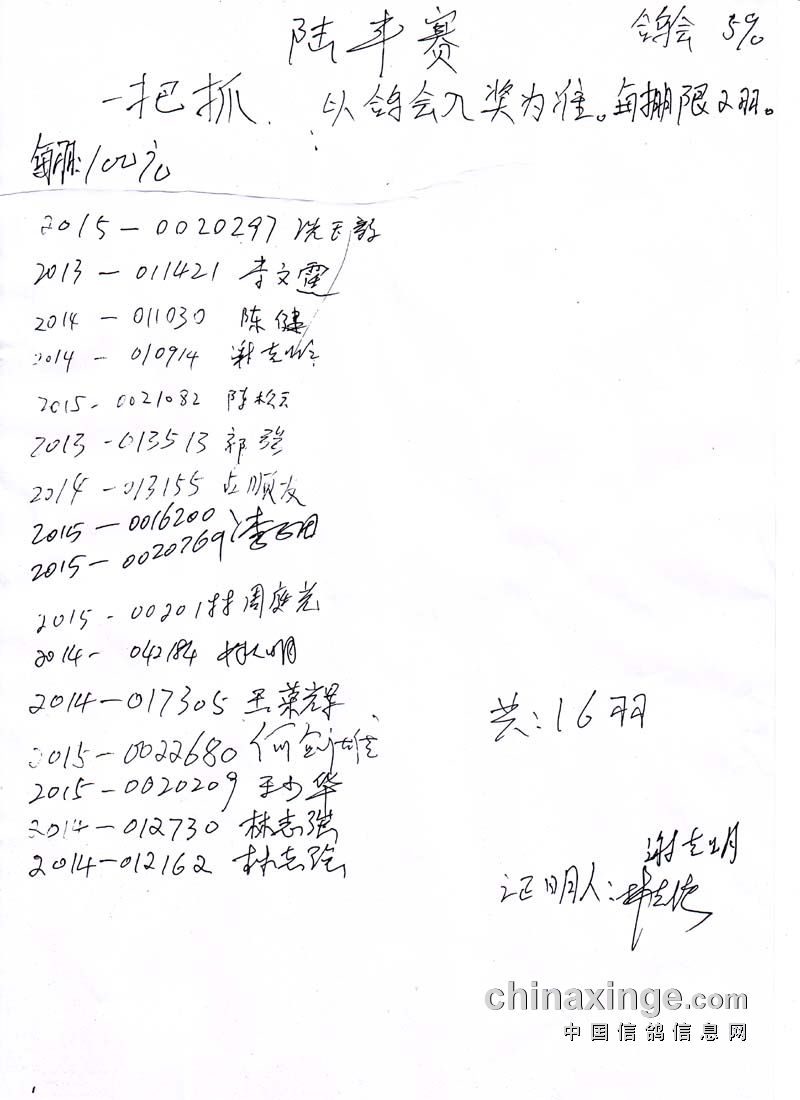 陆丰赛 鸽会 5%
一把抓. 以鸽会入奖为准。每棚限2羽。
每羽:100元
2015-0020297 洗玉毅
2013-011421 李文霞
2014-011030 陈健
2014-010914 谢志
2015-0021082 陈松
2013-013513 郭强
2014-013155 丘顺友
2015-0016200
2015-0020769
2015-00201 周庭光
2014-042184 明
2014-017305 王荣辉
2015-0022680 何剑雄
2015-0020209 王少华
2014-012730 林志强
2014-012162 林志强
共:16羽
谢志明
证明人:
chinaxinge.com
中国信鸽信息网